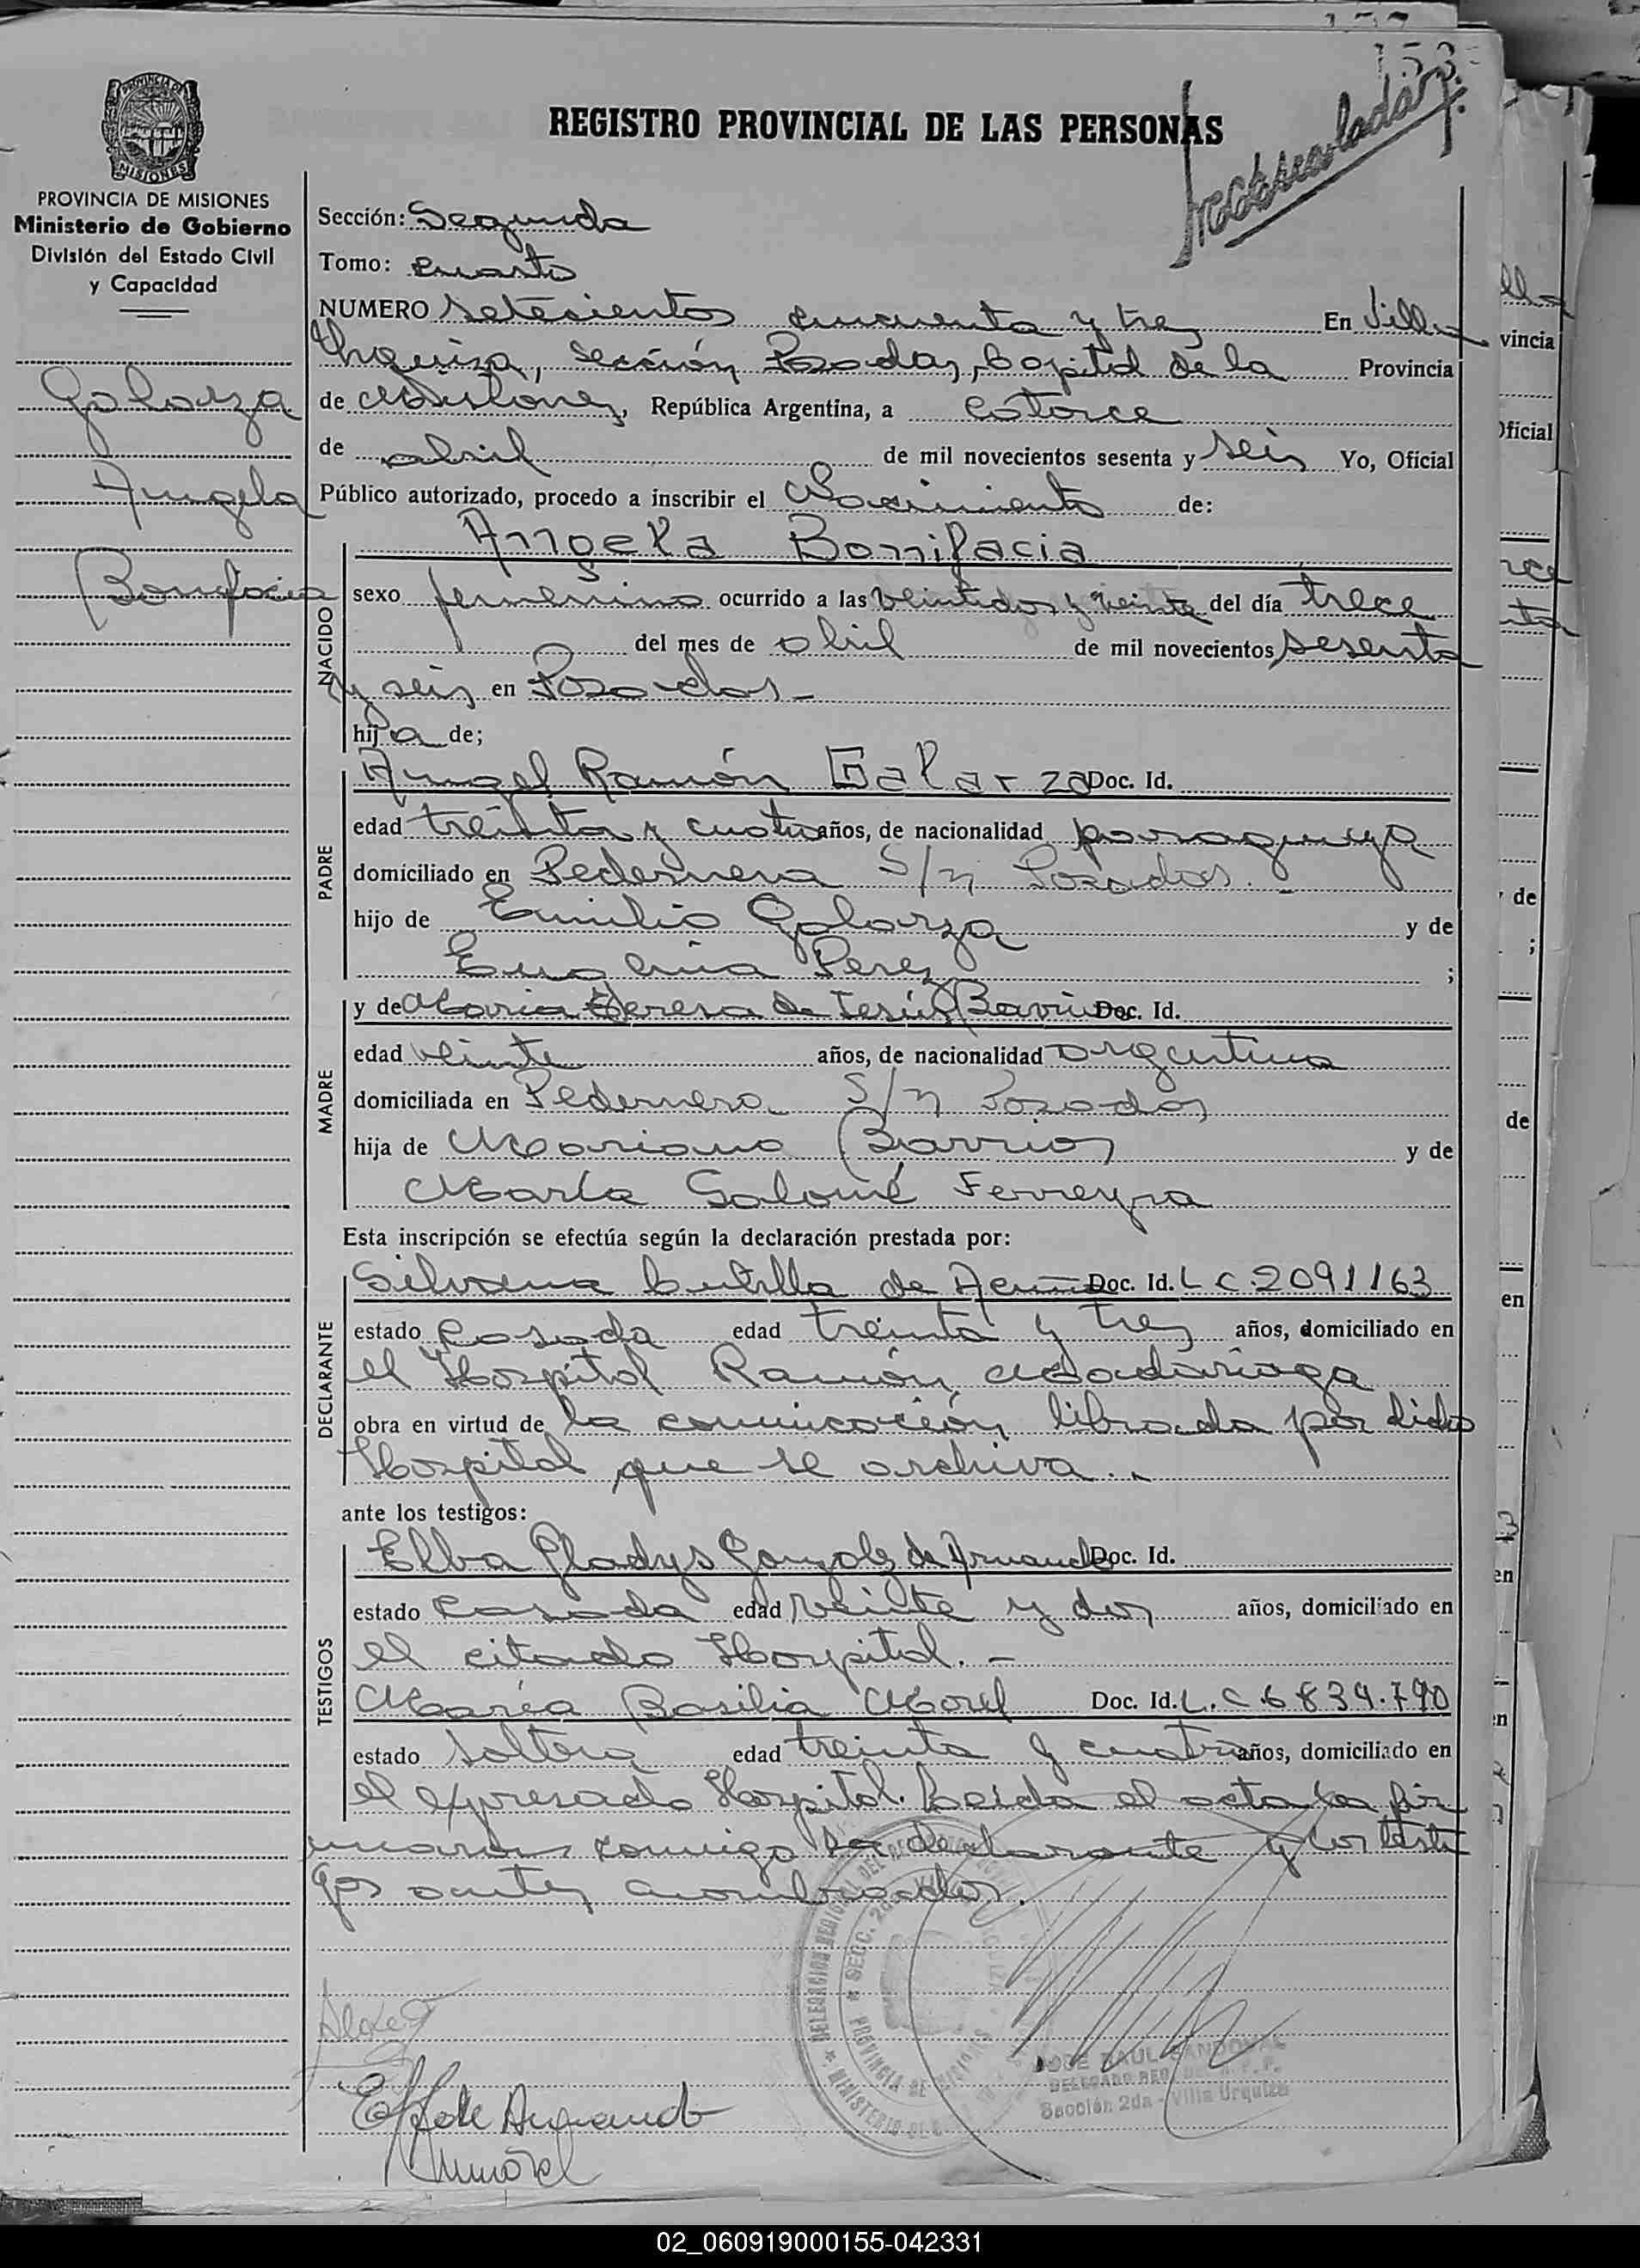 153
REGISTRO PROVINCIAL DE LAS PERSONAS
PROVINCIA DE
MISIONES
PROVINCIA DE MISIONES
Ministerio de Gobierno
División del Estado Civil
y Capacidad
Galarza
Angela
Bonifacia
Sección: Segunda
Tomo: cuarto
NUMERO setecientos cincuenta y tres En Villa
Urquiza, sección Posadas, Capital de la Provincia
de Misiones, República Argentina, a catorce
de abril de mil novecientos sesenta y seis Yo, Oficial
Público autorizado, procedo a inscribir el Nacimiento de:
Angela Bonifacia
NACIDO
sexo femenino ocurrido a las veintidos y veinte del día trece
del mes de abril de mil novecientos sesenta
y seis en Posadas.-
hija de;
PADRE
Angel Ramón Galarza Doc. Id.
edad treinta y cuatro años, de nacionalidad paraguaya
domiciliado en Pedernera S/n Posadas.-
hijo de Emilio Galarza y de
Eugenia Perez ;
MADRE
y de Maria Teresa de Jesús Barrios Doc. Id.
edad veinte años, de nacionalidad argentina
domiciliada en Pedernera S/n Posadas
hija de Mariano Barrios y de
María Salomé Ferreyra
Esta inscripción se efectúa según la declaración prestada por:
DECLARANTE
Silvana de Doc. Id. L C. 2091163
estado casada edad treinta y tres años, domiciliado en
el Hospital Ramón Madariaga
obra en virtud de la comunicación librada por dicho
Hospital que se archiva..
ante los testigos:
TESTIGOS
Elba Gladys Gonzalez de Doc. Id.
estado casada edad veinte y dos años, domiciliado en
el citado Hospital.-
María Basilia Morel Doc. Id. L.C. 6834.790
estado soltera edad treinta y cuatro años, domiciliado en
el expresado Hospital. Leida el acta la fir
maron conmigo la declarante y los testi
gos antes nombrados.
JOSE RAUL SANDOVAL
DELEGADO REG.
Sección 2da - Villa Urquiza
02_060919000155-042331